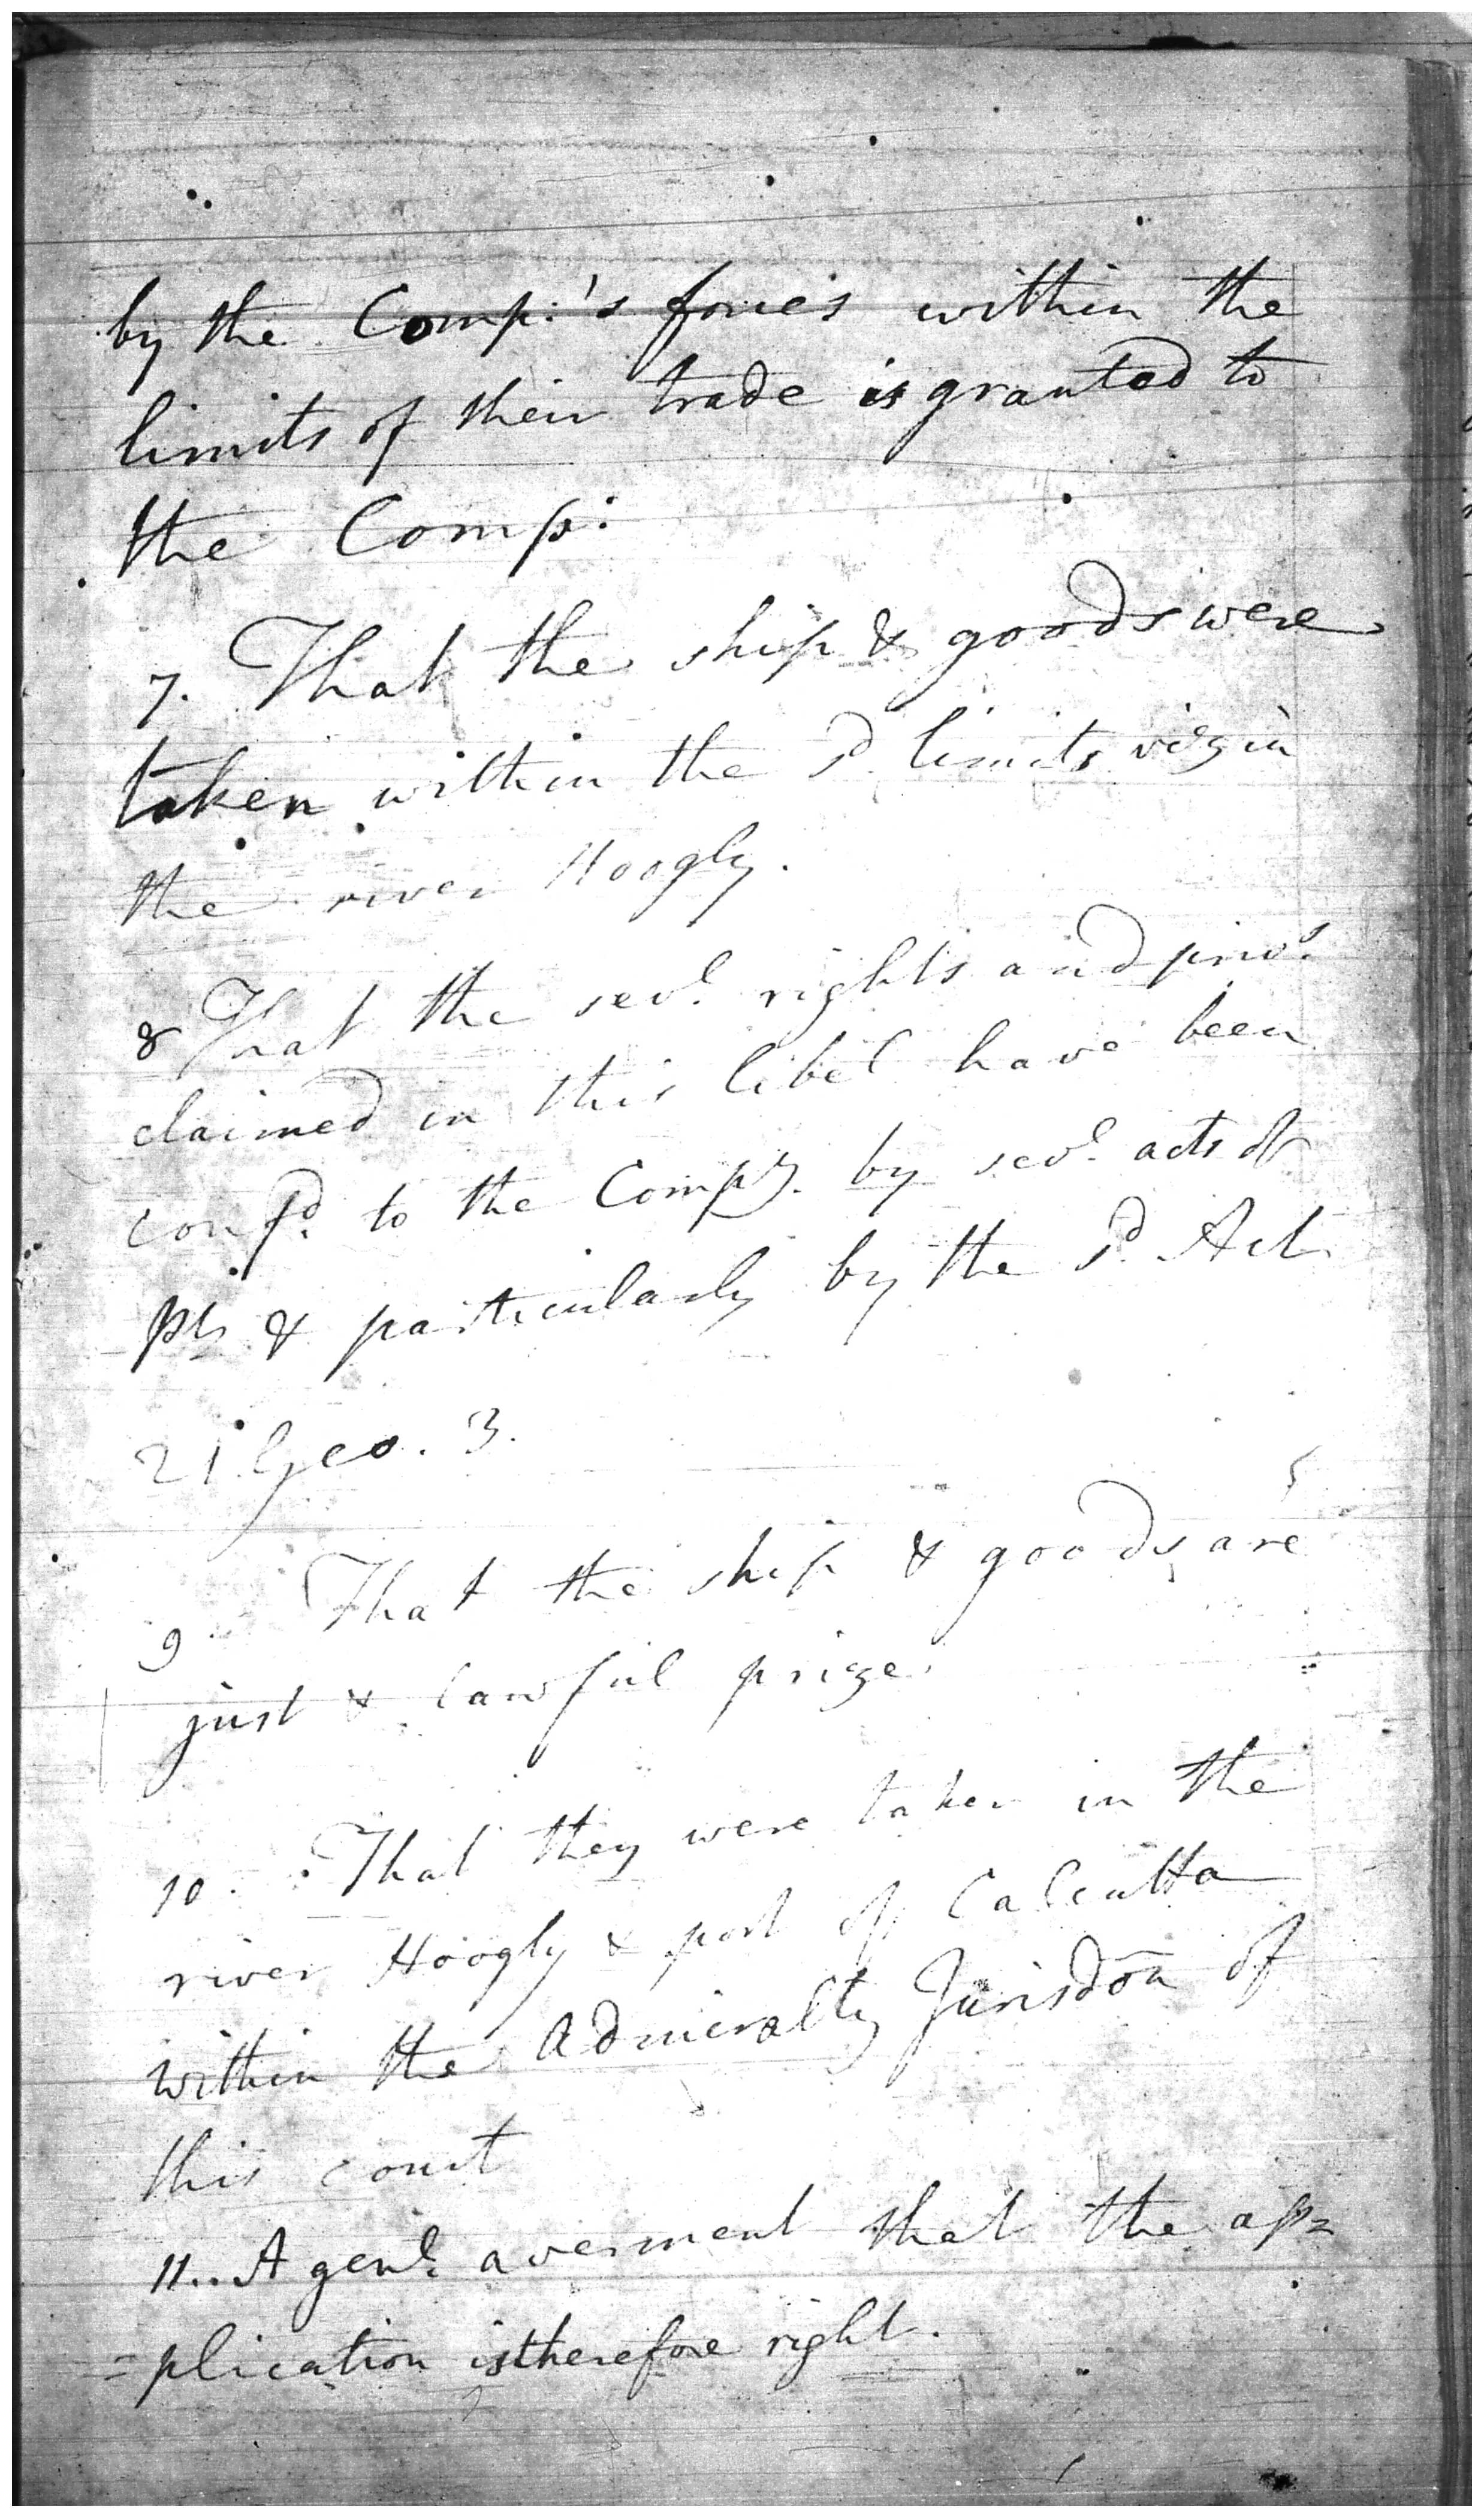 by the Comp:'s forces within the
limits of their trade is granted to
the Comp:
7. That the ship & goods were
taken within the sd. limits viz in
the river Hoogly.
8 That the sevl. rights and privs
claimed in this libel have been
confd. to the Compy. by sevl. acts of
Pt. & particularly by the sd. Act
21 Geo. 3.
9 That the ship & goods are
just & lawful prize.
10. That they were taken in the
river Hoogly & port of Calcutta
within the Admiralty Jurisdon of
this court
11.. A genl. averment that the ap=
=plication is therefore right.